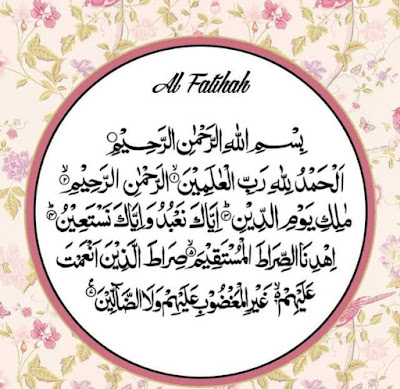 Al Fatihah
بِسْمِ اللهِ الرَّحْمٰنِ الرَّحِيْمِ
اَلْحَمْدُ لِلّٰهِ رَبِّ الْعٰلَمِيْنَ ۝١ الرَّحْمٰنِ الرَّحِيْمِ ۝٢
مٰلِكِ يَوْمِ الدِّيْنِ ۝٣ اِيَّاكَ نَعْبُدُ وَاِيَّاكَ نَسْتَعِيْنُ ۝٤
اِهْدِنَا الصِّرَاطَ الْمُسْتَقِيْمَ ۝٥ صِرَاطَ الَّذِيْنَ اَنْعَمْتَ
عَلَيْهِمْ ۝٦ غَيْرِ الْمَغْضُوْبِ عَلَيْهِمْ وَلَا الضَّآلِّيْنَ ۝٧